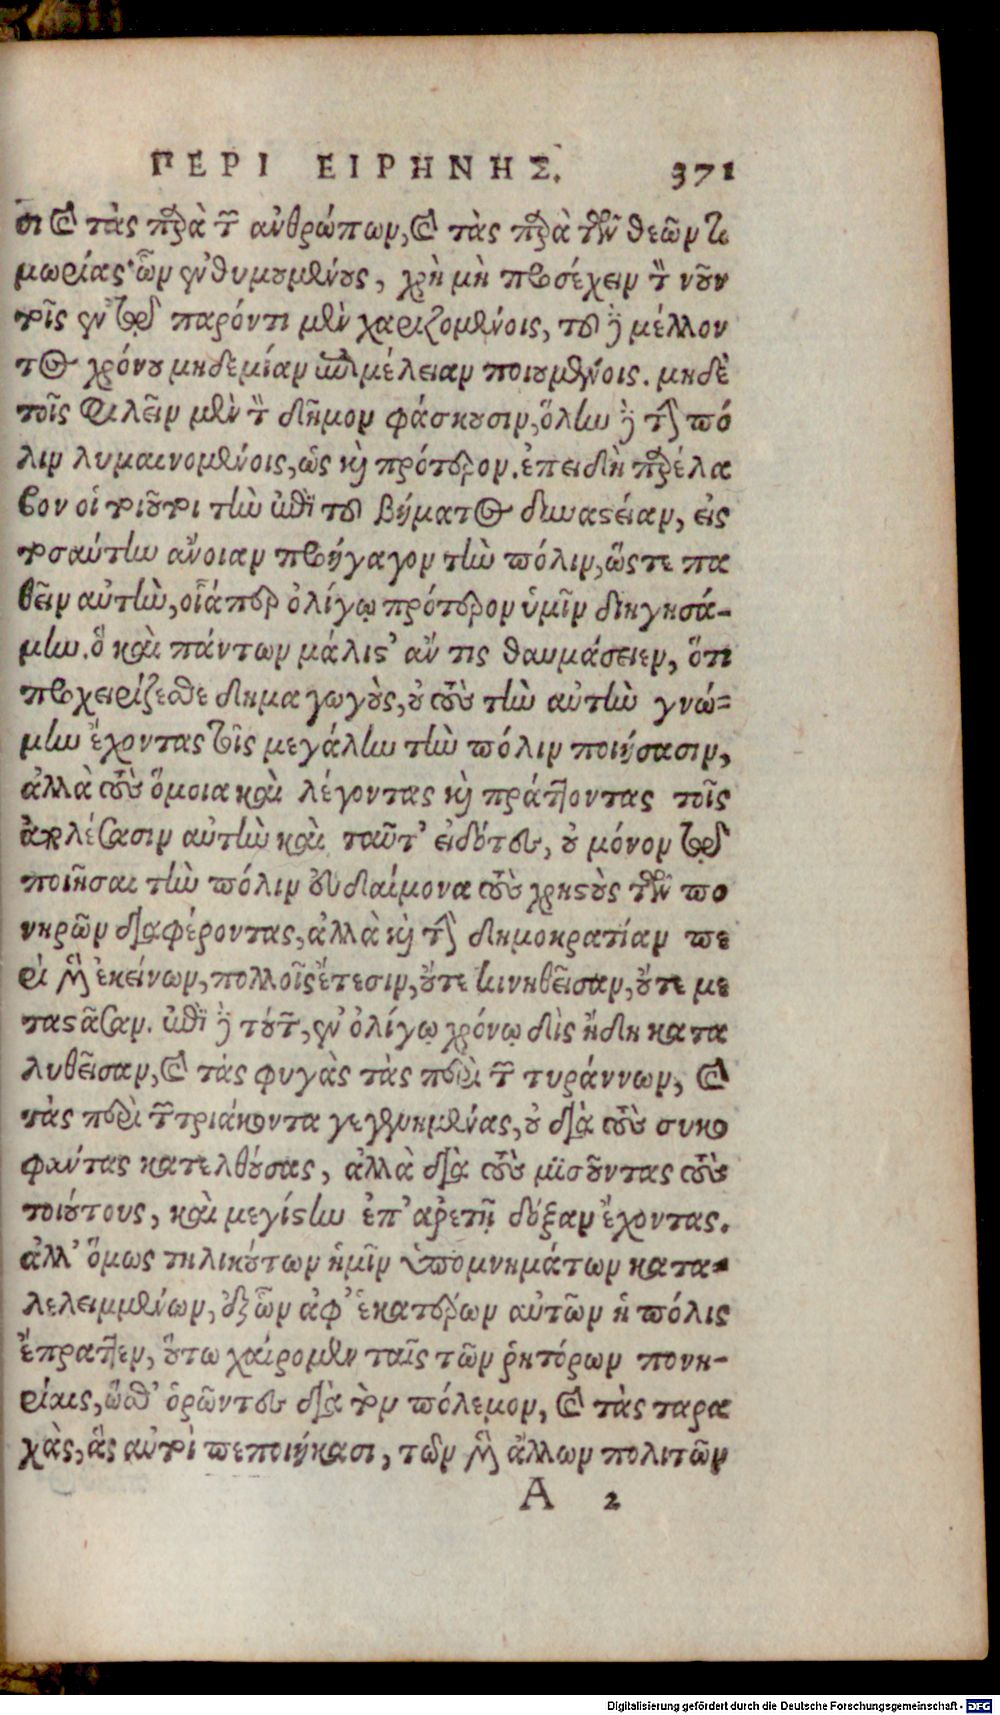 ΠΕΡΙ ΕΙΡΗΝΗΣ. 371
σι καὶ τὰς παρὰ τῶν ἀνθρώπων, καὶ τὰς παρὰ τῶν θεῶν τι
μωρίας· ὧν ἐνθυμουμένους, χρὴ μὴ προσέχειν τὸν νοῦν
τοῖς ἐν τῷ παρόντι μὲν χαριζομένοις, τοῦ δὲ μέλλον
τος χρόνου μηδεμίαν ἐπιμέλειαν ποιουμένοις. μηδὲ
τοῖς φιλεῖν μὲν τὸν δῆμον φάσκουσιν, ὅλην δὲ τὴν πό
λιν λυμαινομένοις, ὡς καὶ πρότερον. ἐπειδὴ παρέλα
βον οἱ τοιοῦτοι τὴν ἐπὶ τοῦ βήματος δυναστείαν, εἰς
τοσαύτην ἄνοιαν προήγαγον τὴν πόλιν, ὥστε πα
θεῖν αὐτὴν, οἷάπερ ὀλίγῳ πρότερον ὑμῖν διηγησά-
μην. ὃ καὶ πάντων μάλιστ' ἄν τις θαυμάσειεν, ὅτι
προχειρίζεσθε δημαγωγοὺς, οὐ τοὺς τὴν αὐτὴν γνώ-
μην ἔχοντας τοῖς μεγάλην τὴν πόλιν ποιήσασιν,
ἀλλὰ τοὺς ὅμοια καὶ λέγοντας καὶ πράττοντας τοῖς
ἀπολέσασιν αὐτὴν καὶ ταῦτ' εἰδότες, οὐ μόνον τῷ
ποιῆσαι τὴν πόλιν εὐδαίμονα τοὺς χρηστοὺς τῶν πο
νηρῶν διαφέροντας, ἀλλὰ καὶ τὴν δημοκρατίαν ἐπὶ μὲν ἐκείνων, πολλοῖς ἔτεσιν, οὔτε κινηθεῖσαν, οὔτε με
τασᾶσαν. ἐπὶ δὲ τούτων, ἐν ὀλίγῳ χρόνῳ δὶς ἤδη κατα
λυθεῖσαν, καὶ τὰς φυγὰς τὰς περὶ τῶν τυράννων, καὶ
τὰς περὶ τῶν τριάκοντα γεγενημένας, οὐ διὰ τοὺς συκο
φάντας κατελθούσας, ἀλλὰ διὰ τοὺς μισοῦντας τοὺς
τοιούτους, καὶ μεγίστην ἐπ' ἀρετῇ δόξαν ἔχοντας.
ἀλλ' ὅμως τηλικούτων ἡμῖν ὑπομνημάτων κατα-
λελειμμένων, ἐξ ὧν ἀφ' ἑκατέρων αὐτῶν ἡ πόλις
ἔπραττεν, οὕτω χαίρομεν ταῖς τῶν ῥητόρων πονη-
ρίαις, ὥσθ' ὁρῶντες διὰ τὸν πόλεμον, καὶ τὰς ταρα
χὰς, ἃς αὐτοὶ πεποιήκασι, τῶν μὲν ἄλλων πολιτῶν
A 2
Digitalisierung gefördert durch die Deutsche Forschungsgemeinschaft - DFG